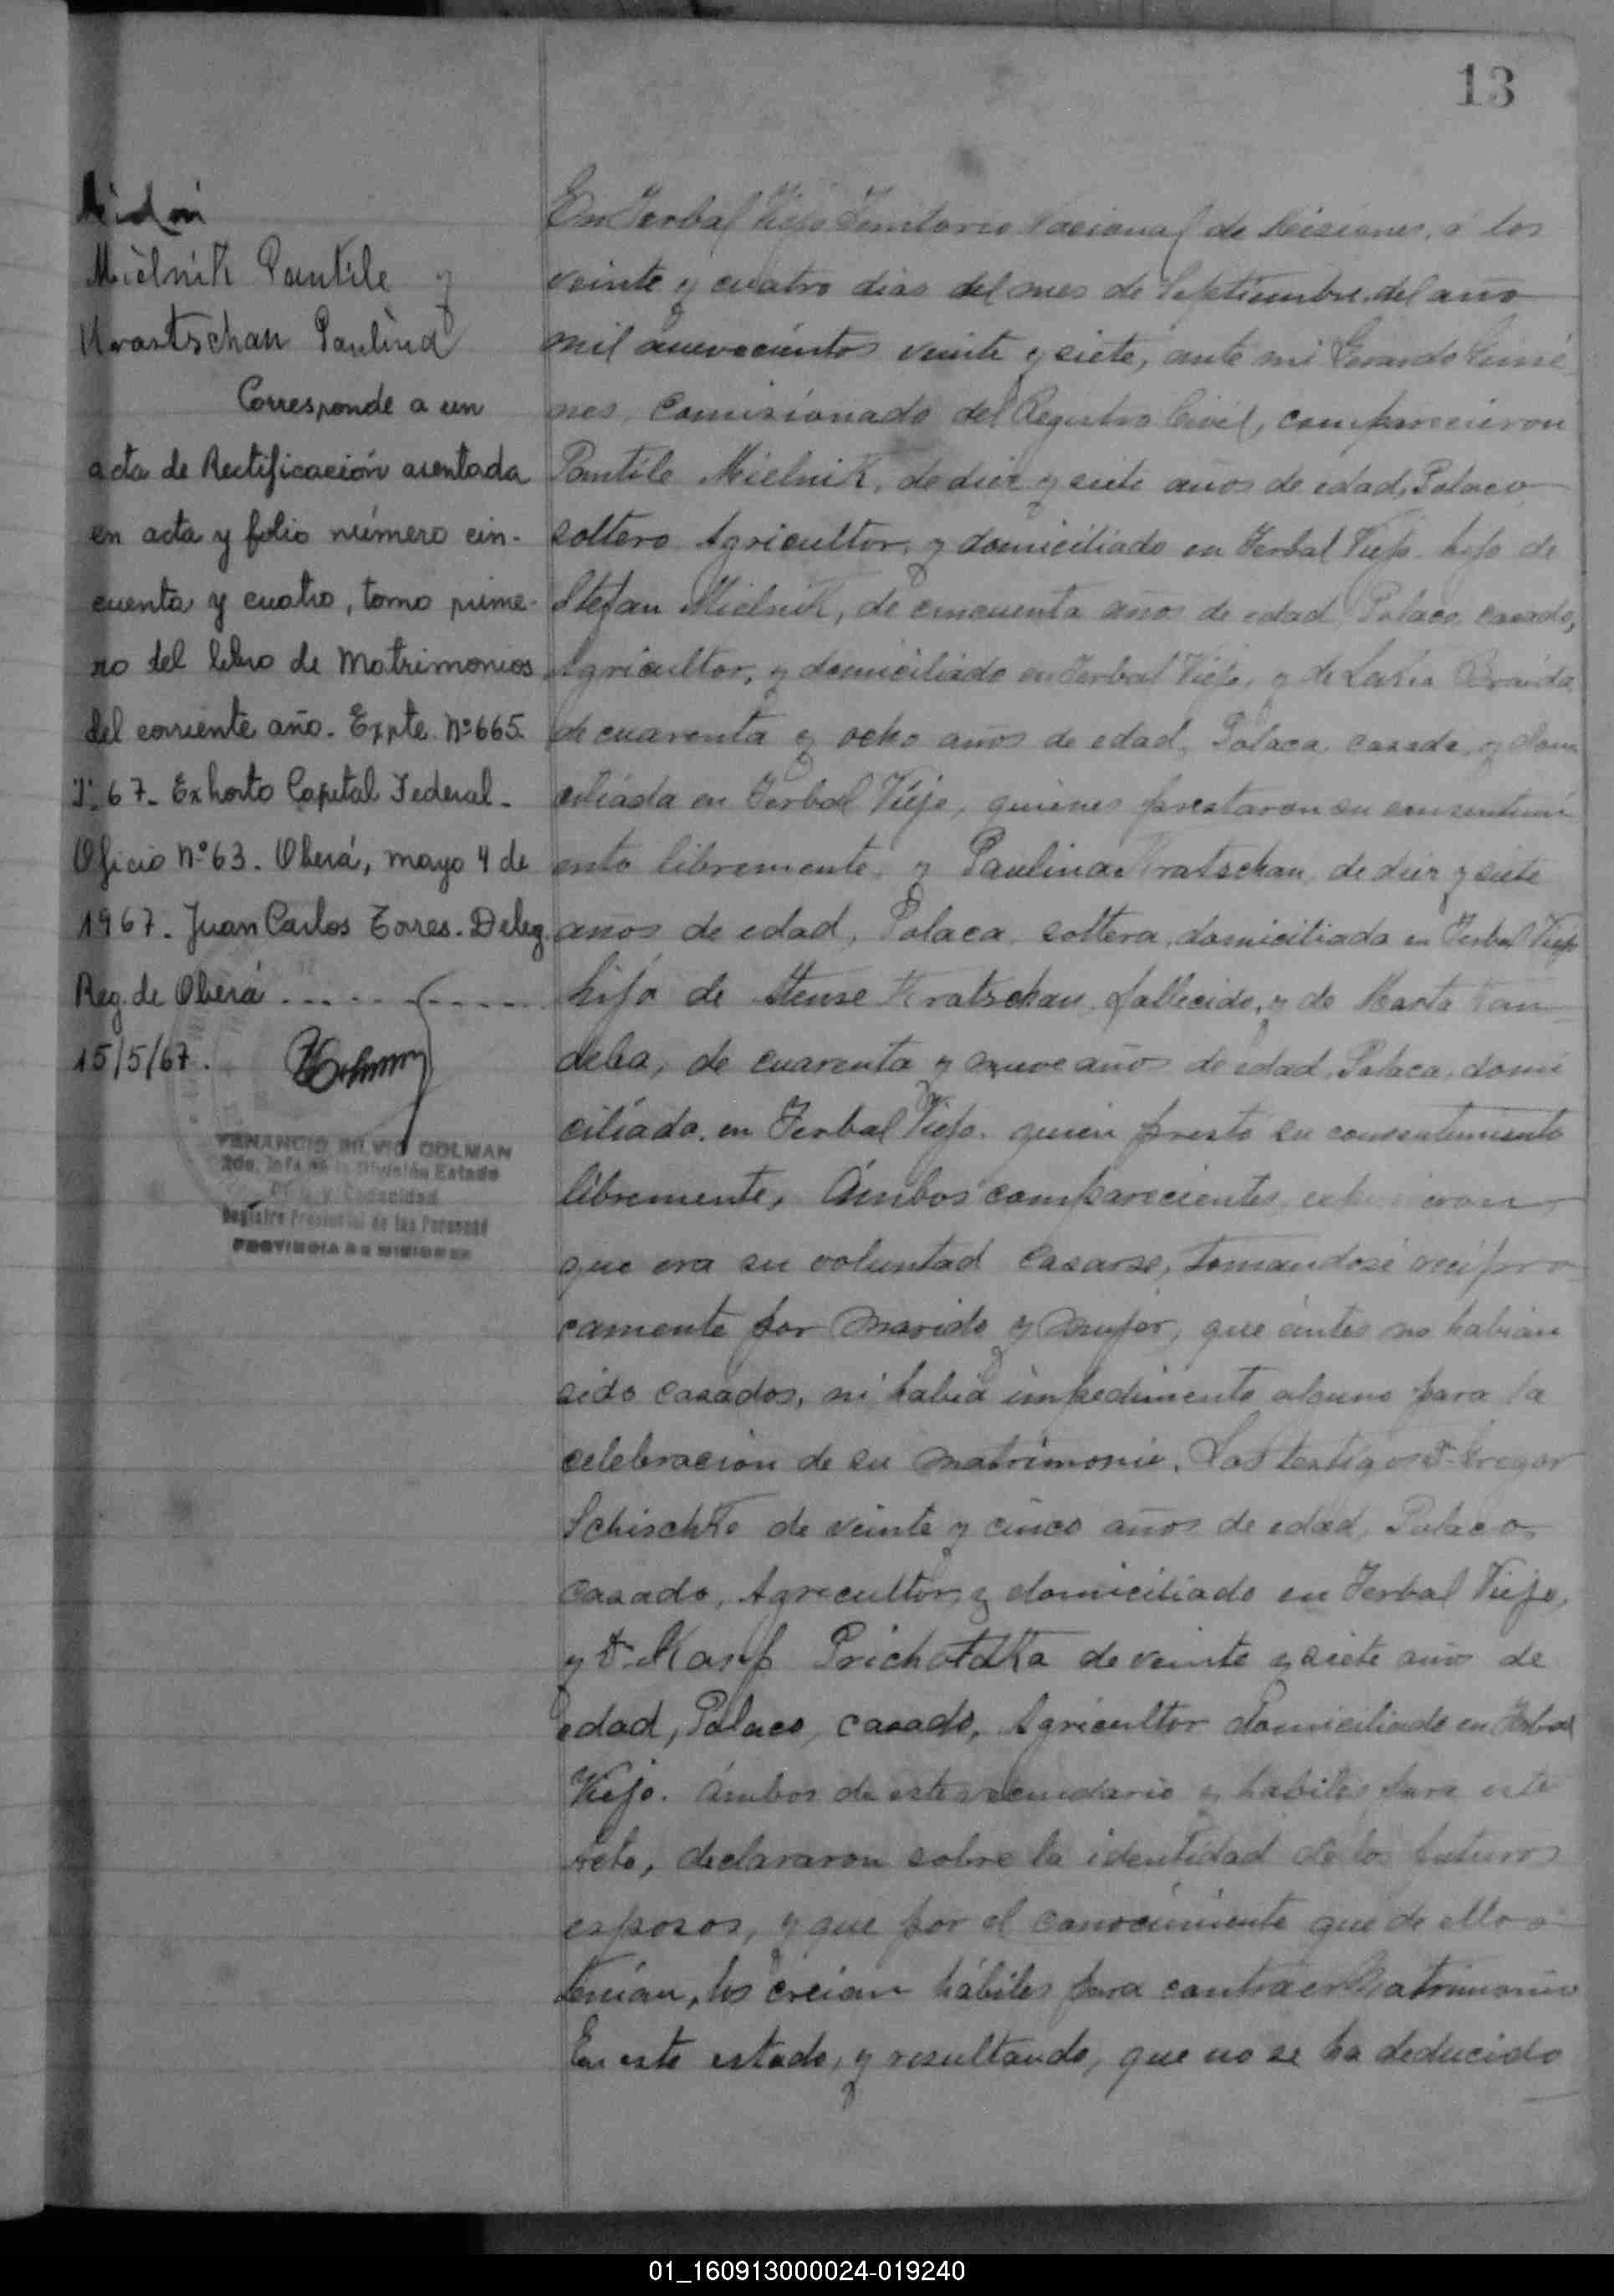 13
Mielnik Pantile y
Kratschan Paulina
Corresponde a un
acta de Rectificación asentada
en acta y folio número cin-
cuenta y cuatro, tomo prime-
ro del libro de Matrimonios
del corriente año. Expte. Nº 665.
67_ Exhorto Capital Federal_
Oficio Nº 63. Oberá, mayo 4 de
1967_ Juan Carlos Torres. Deleg.
Reg. de Oberá
15/5/67.
VENANCIO SILVIO DOLMAN
2do. Jefe División Estado
y Capacidad
Registro Provincial de las Personas
PROVINCIA DE MISIONES
En Yerbal Viejo Territorio Nacional de Misiones, á los
veinte y cuatro dias del mes de Septiembre, del año
mil nuevecientos veinte y siete, ante mi Gerardo Gimé
nes, Comisionado del Registro Civil, comparecieron
Pantile Mielnik, de diez y siete años de edad, Polaco
soltero Agricultor, y domiciliado en Yerbal Viejo hijo de
Stefan Mielnik, de cincuenta años de edad Polaco casado,
Agricultor, y domiciliado en Yerbal Viejo, y de
de cuarenta y ocho años de edad, Polaca casada, y domi
ciliada en Yerbal Viejo, quienes prestaron su consentimi
ento libremente, y Paulina Kratschan, de diez y siete
años de edad, Polaca soltera, domiciliada en Yerbal Viejo
hija de Kratschan, fallecido, y de Marta
de cuarenta y nueve años de edad, Polaca, domi
ciliada, en Yerbal Viejo. quien prestó su consentimiento
libremente, Ambos comparecientes
que era su voluntad casarse, tomandose recipro
camente por marido y mujer, que ántes no habian
sido casados, ni habia impedimento alguno para la
celebracion de su matrimonio. Los testigos Dn Gregor
Schischko de veinte y cinco años de edad, Polaco,
casado, Agricultor, y domiciliado en Yerbal Viejo,
y Dn Prichodka de veinte y siete años de
edad, Polaco, casado, Agricultor domiciliado en Yerbal
Viejo. Ambos de este vecindario y habiles para este
acto, declararon sobre la identidad de los futuros
esposos, y que por el conocimiento que de ellos
tenian, los creian hábiles para contraer Matrimonio
En este estado, y resultando, que no se ha deducido
01_160913000024-019240